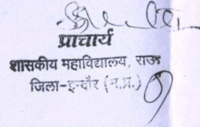 प्राचार्य
शासकीय महाविद्यालय, राऊ
जिला-इन्दौर (म.प्र.)